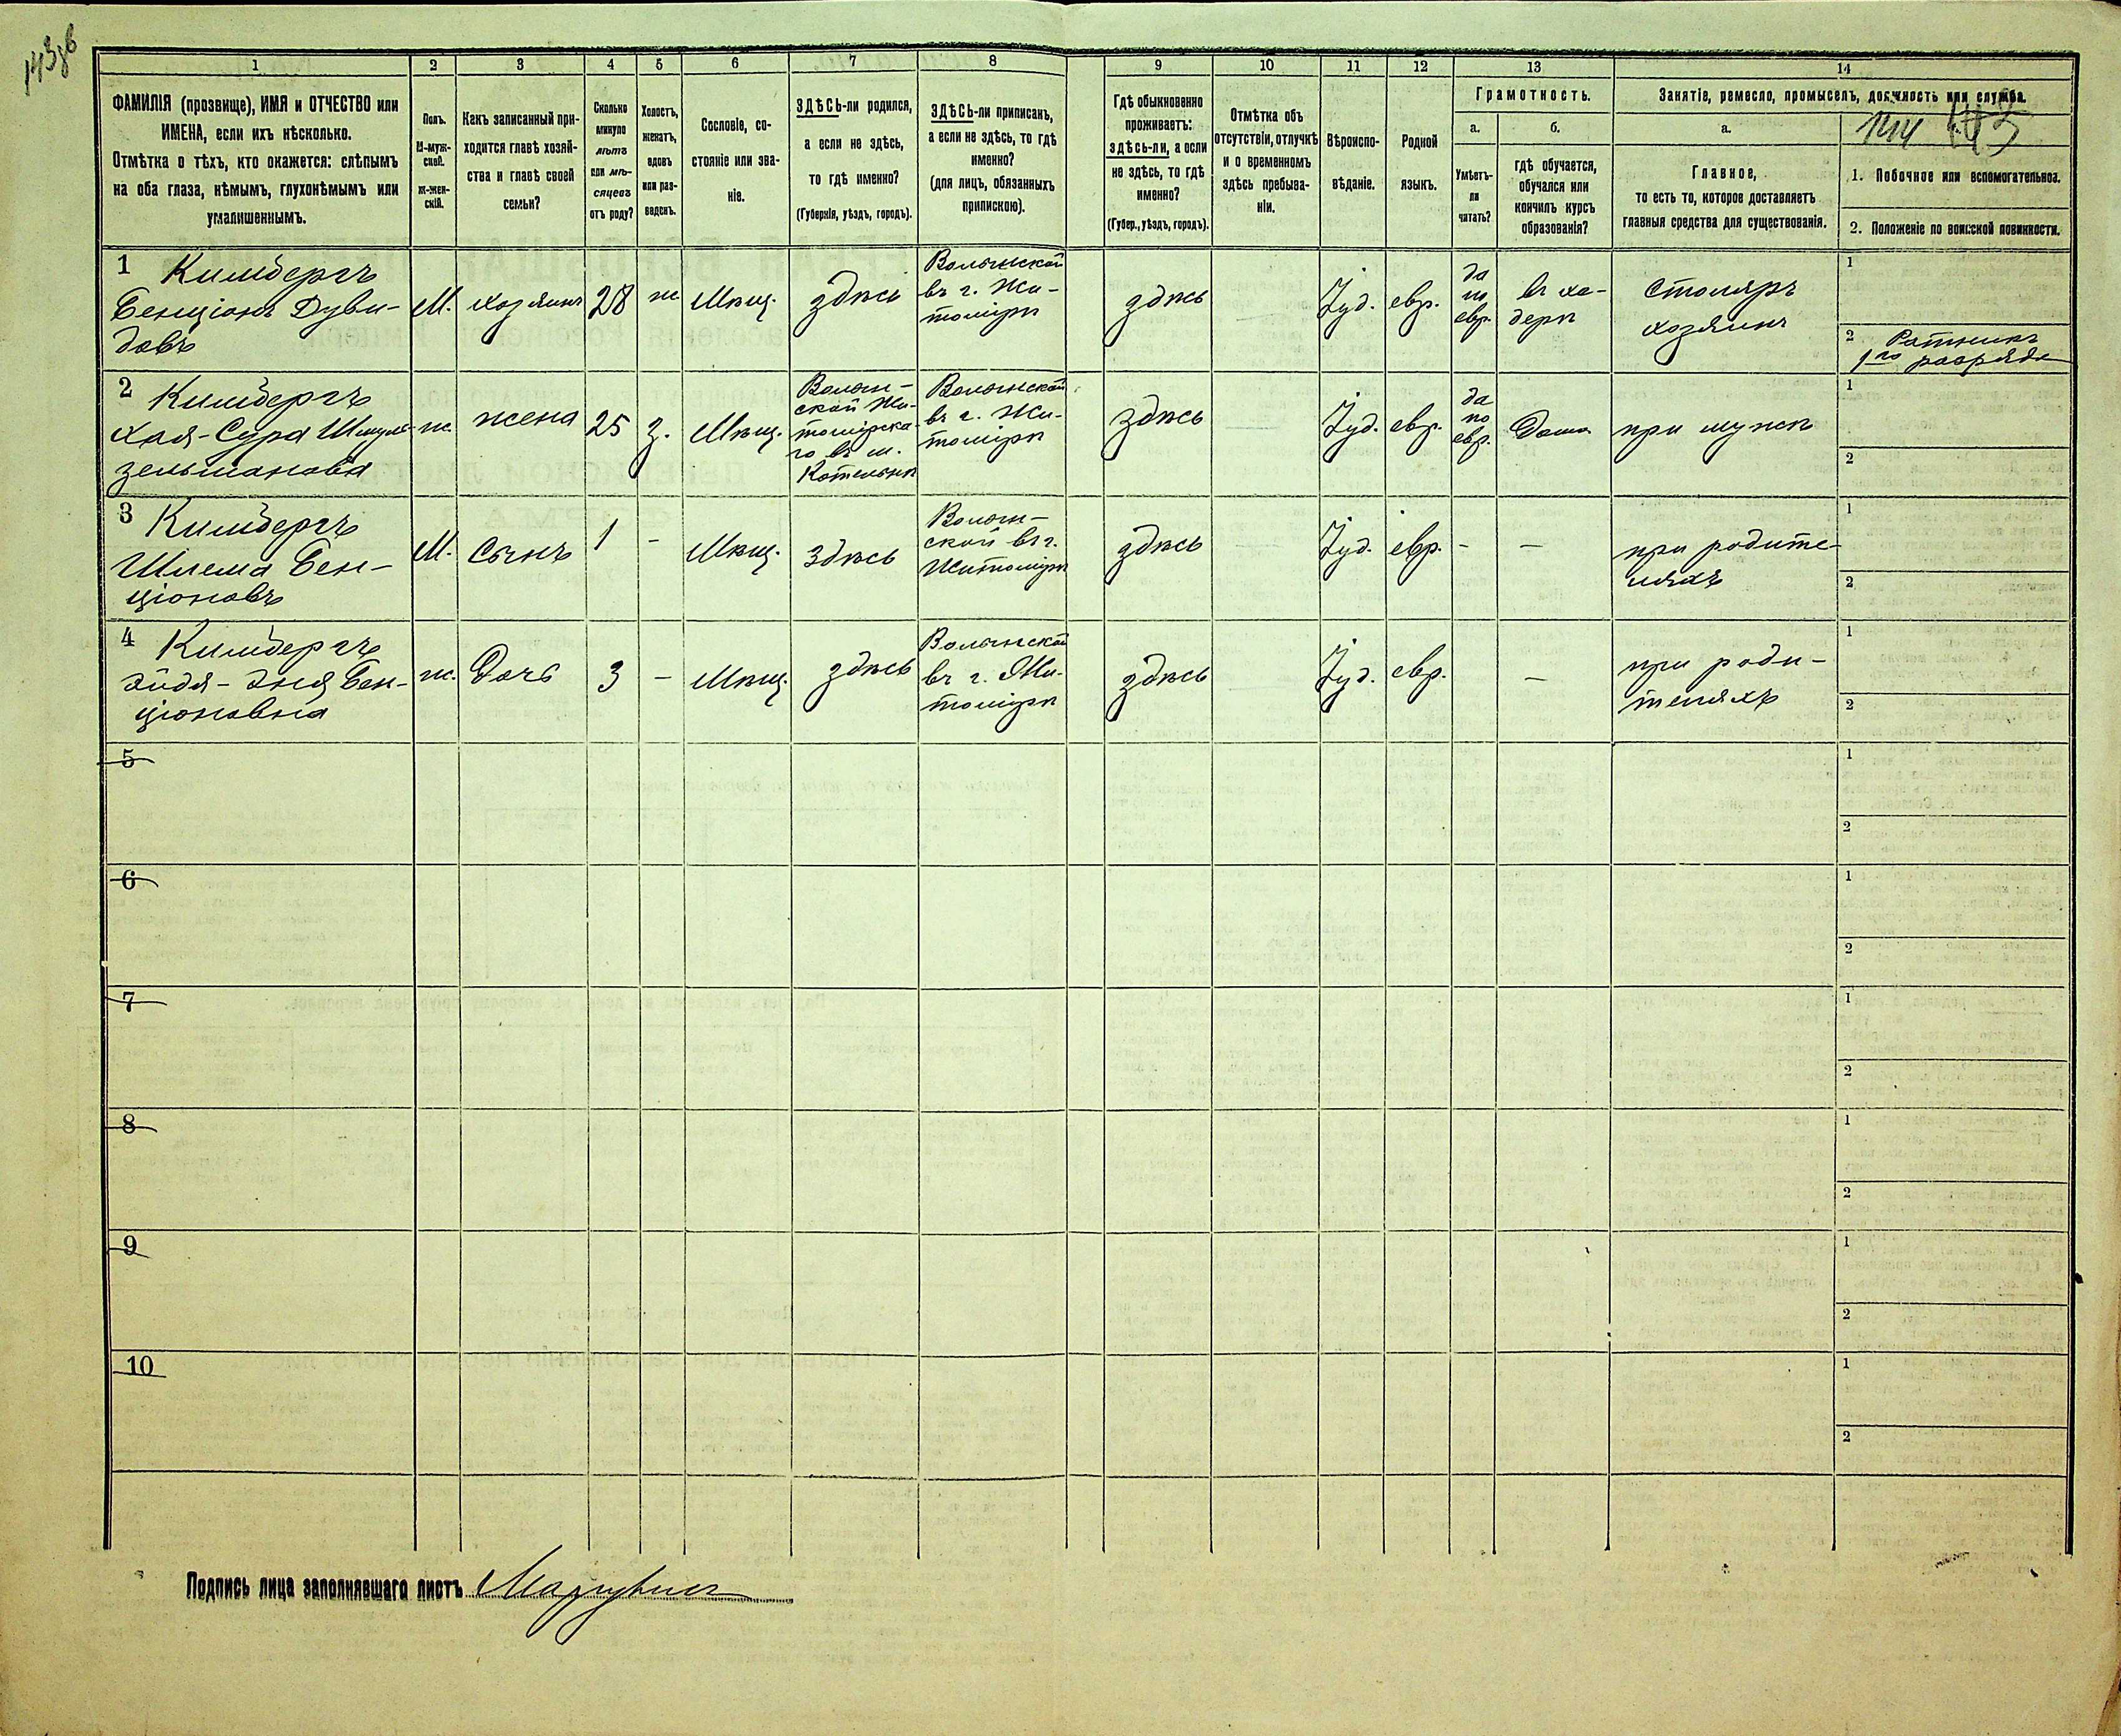 143об
1 2 3 4 5 6 7 8 9 10 11 12 13 14
ФАМИЛІЯ (прозвище), ИМЯ и ОТЧЕСТВО или
ИМЕНА, если ихъ нѣсколько.
Отмѣтка о тѣхъ, кто окажется: слѣпымъ
на оба глаза, нѣмымъ, глухонѣмымъ или
умалишеннымъ.
Полъ.
М-муж-
ской.
ж-жен-
скій.
Какъ записанный при-
ходится главѣ хозяй-
ства и главѣ своей
семьи?
Сколько
минуло
лѣтъ
или мѣ-
сяцевъ
отъ роду?
Холостъ,
женатъ,
вдовъ
или раз-
веденъ.
Сословіе, со-
стояніе или зва-
ніе.
ЗДѢСЬ-ли родился,
а если не здѣсь,
то гдѣ именно?
(Губернія, уѣздъ, городъ).
ЗДѢСЬ-ли приписанъ,
а если не здѣсь, то гдѣ
именно?
(для лицъ, обязанныхъ
припискою).
Гдѣ обыкновенно
проживаетъ:
здѣсь-ли, а если
не здѣсь, то гдѣ
именно?
(Губер., уѣздъ, городъ).
Отмѣтка объ
отсутствіи, отлучкѣ
и о временномъ
здѣсь пребыва-
ніи.
Вѣроиспо-
вѣданіе.
Родной
языкъ.
Грамотность.
а.
Умѣетъ-
ли
читать?
б.
гдѣ обучается,
обучался или
кончилъ курсъ
образованія?
Занятіе, ремесло, промыселъ, должность или служба.
а.
Главное,
то есть то, которое доставляетъ
главныя средства для существованія.
144
1. Побочное или вспомогательное.
2. Положеніе по воинской повинности.
1 Кимбергъ
Бенціонъ Дуви-
довъ
М.
хозяинъ
28
ж
Мѣщ.
здѣсь
Волынской
въ г. Жи-
томірѣ
здѣсь
Іуд.
евр.
да
по
евр.
въ хе-
дерѣ
столяръ
хозяинъ
1
2 Ратникъ
1го разряда
2 Кимбергъ
Хая-Сура Шмуль-
зельмановна
ж.
жена
25
з.
Мѣщ.
Волын-
ской Жи-
томірска-
го въ м.
Котельнѣ
Волынской
въ г. Жи-
томірѣ
здѣсь
Іуд.
евр.
да
по
евр.
Дома
при мужѣ
1
2
3 Кимбергъ
Шлема Бен-
ціоновъ
М.
Сынъ
1
-
Мѣщ.
здѣсь
Волын-
ской въ г.
Житомірѣ
здѣсь
Іуд.
евр.
-
-
при родите-
ляхъ
1
2
4 Кимбергъ
Эйдя-Эня Бен-
ціоновна
ж.
Дочь
3
-
Мѣщ.
здѣсь
Волынской
въ г. Жи-
томірѣ
здѣсь
Іуд.
евр.
-
при роди-
теляхъ
1
2
5
1
2
6
1
2
7
1
2
8
1
2
9
1
2
10
1
2
Подпись лица заполнявшаго листъ